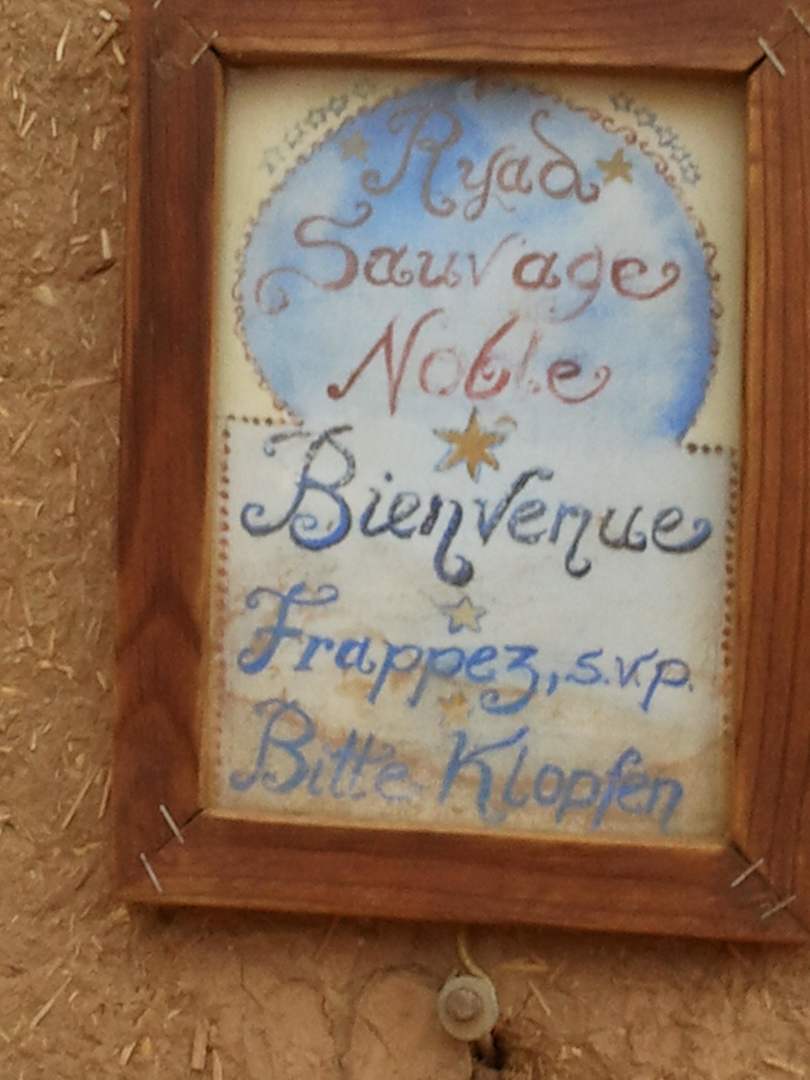 Ryad
Sauvage
Noble
Bienvenue
Frappez, s.v.p.
Bitte Klopfen